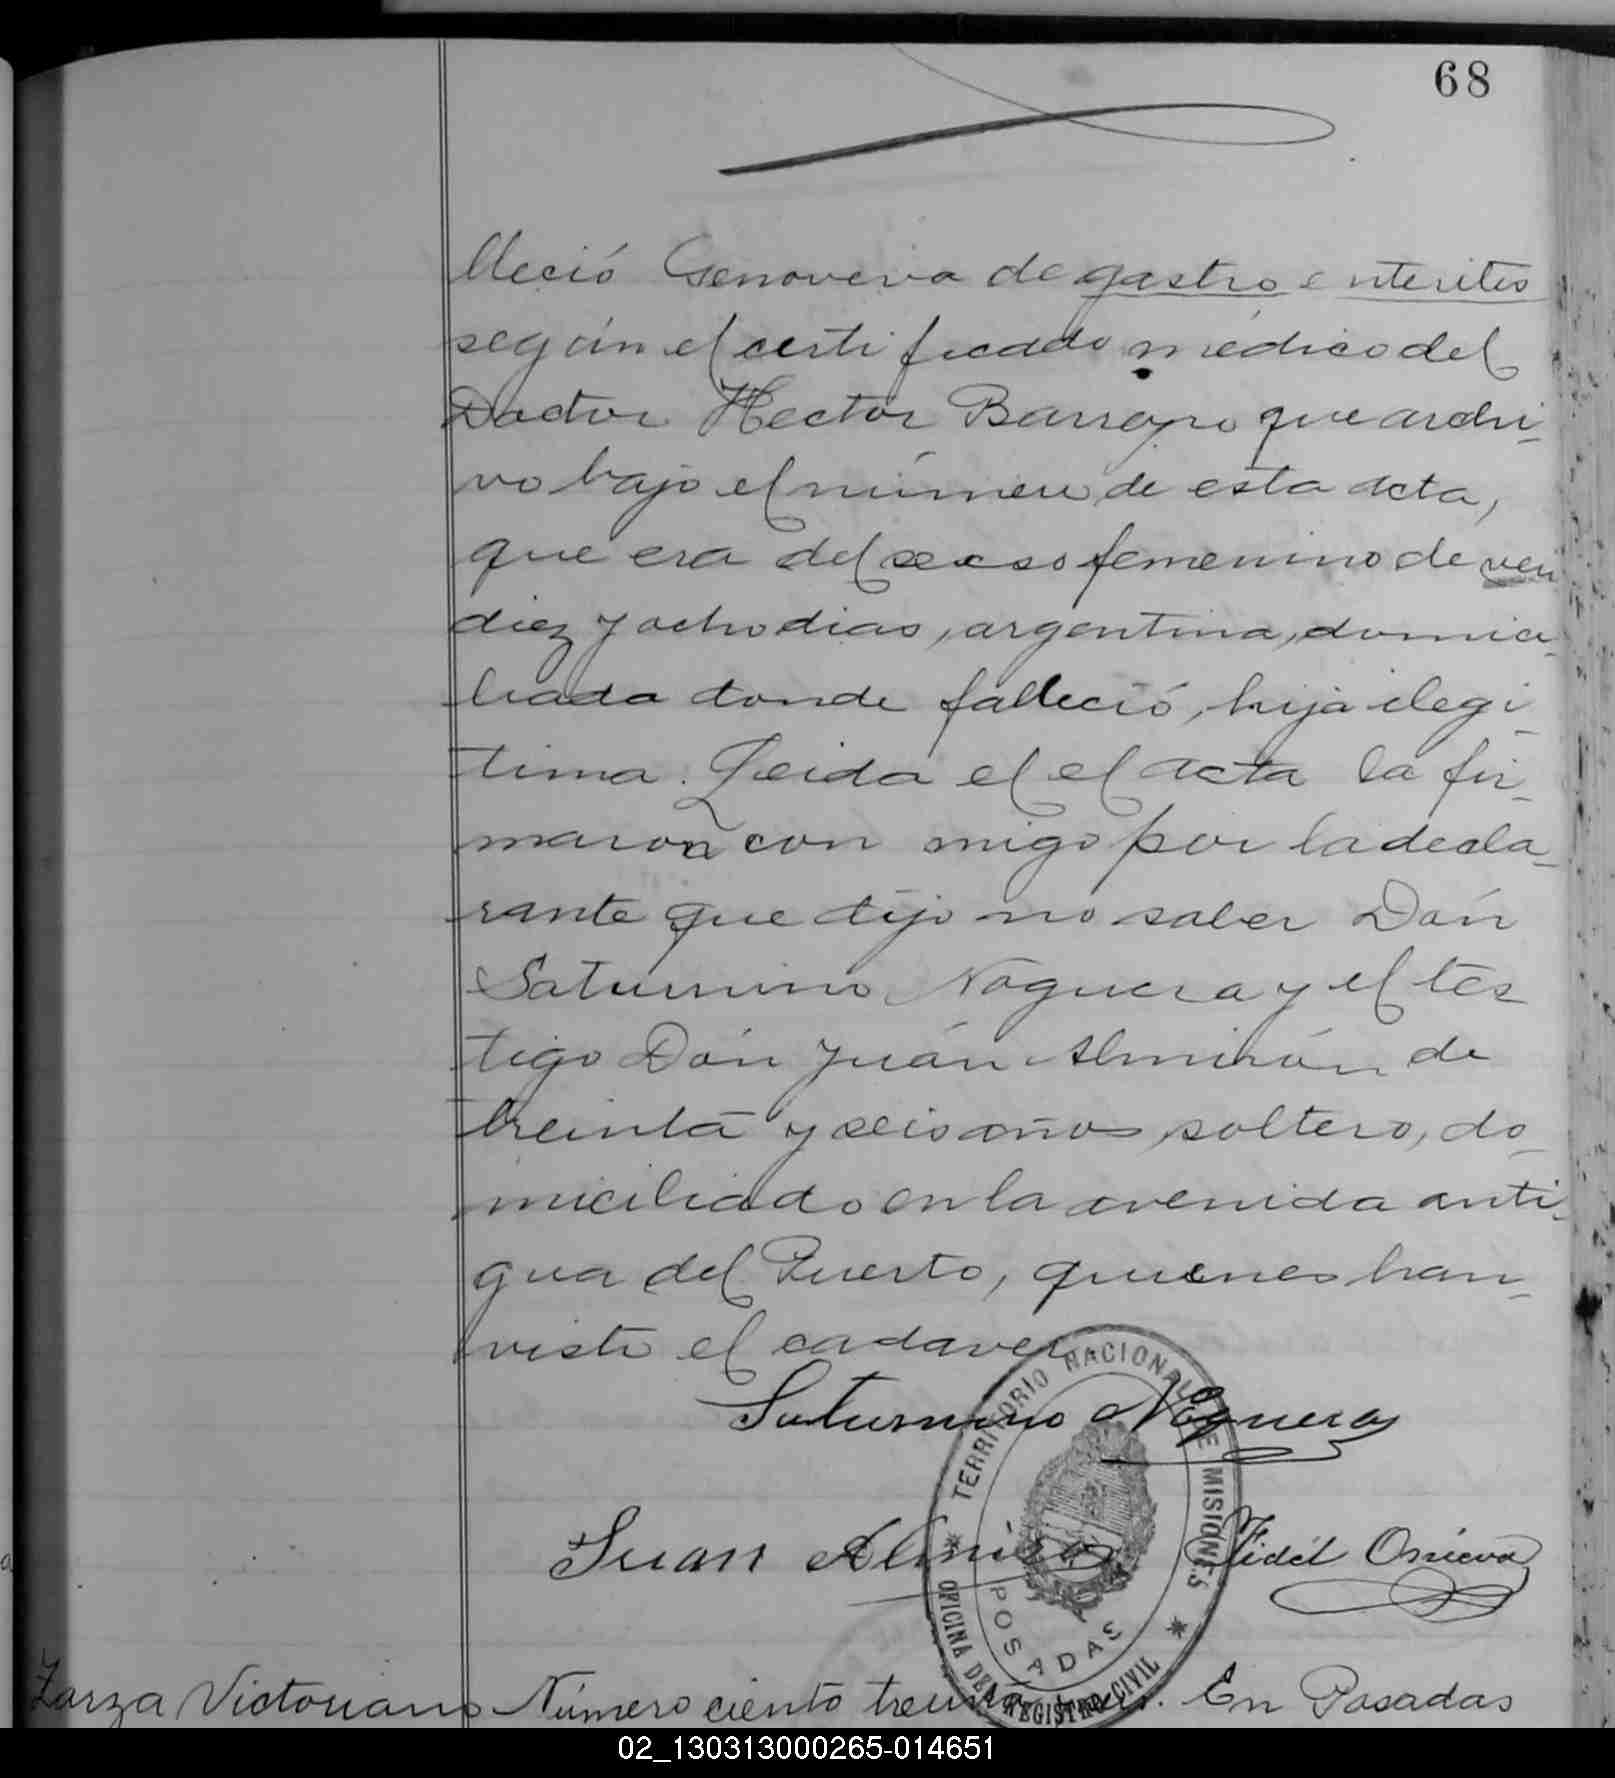 68
lleció Genoveva de gastro enterites
según el certificado médico del
Doctor Hector Barreyro que archi-
vo bajo el número de esta acta,
que era del secso femenino de
diez y ocho dias, argentina, domici-
liada donde falleció, hija ilegi-
tima. Leida el el acta la fir-
maron con migo por la decla-
rante que dijo no saber Dón
Saturnino Noguera y el tes
tigo Dón Juán Almirón de
treinta y seis años, soltero, do-
miciliado en la avenida anti-
gua del Puerto, quienes han-
visto el cadaver.
Saturnino Noguera
Juan Almiron Fidel
TERRITORIO NACIONAL DE MISIONES
OFICINA DEL REGISTRO CIVIL
POSADAS
Zarza Victoriano Número ciento treinta. En Posadas
02_130313000265-014651